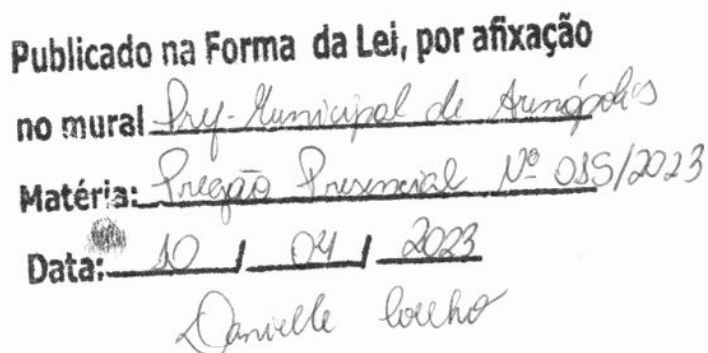 Publicado na Forma da Lei, por afixação
no mural Pref. Municipal de Arenópolis
Matéria: Pregão Presencial Nº 015/2023
Data: 10 / 04 / 2023
Danielle Coelho